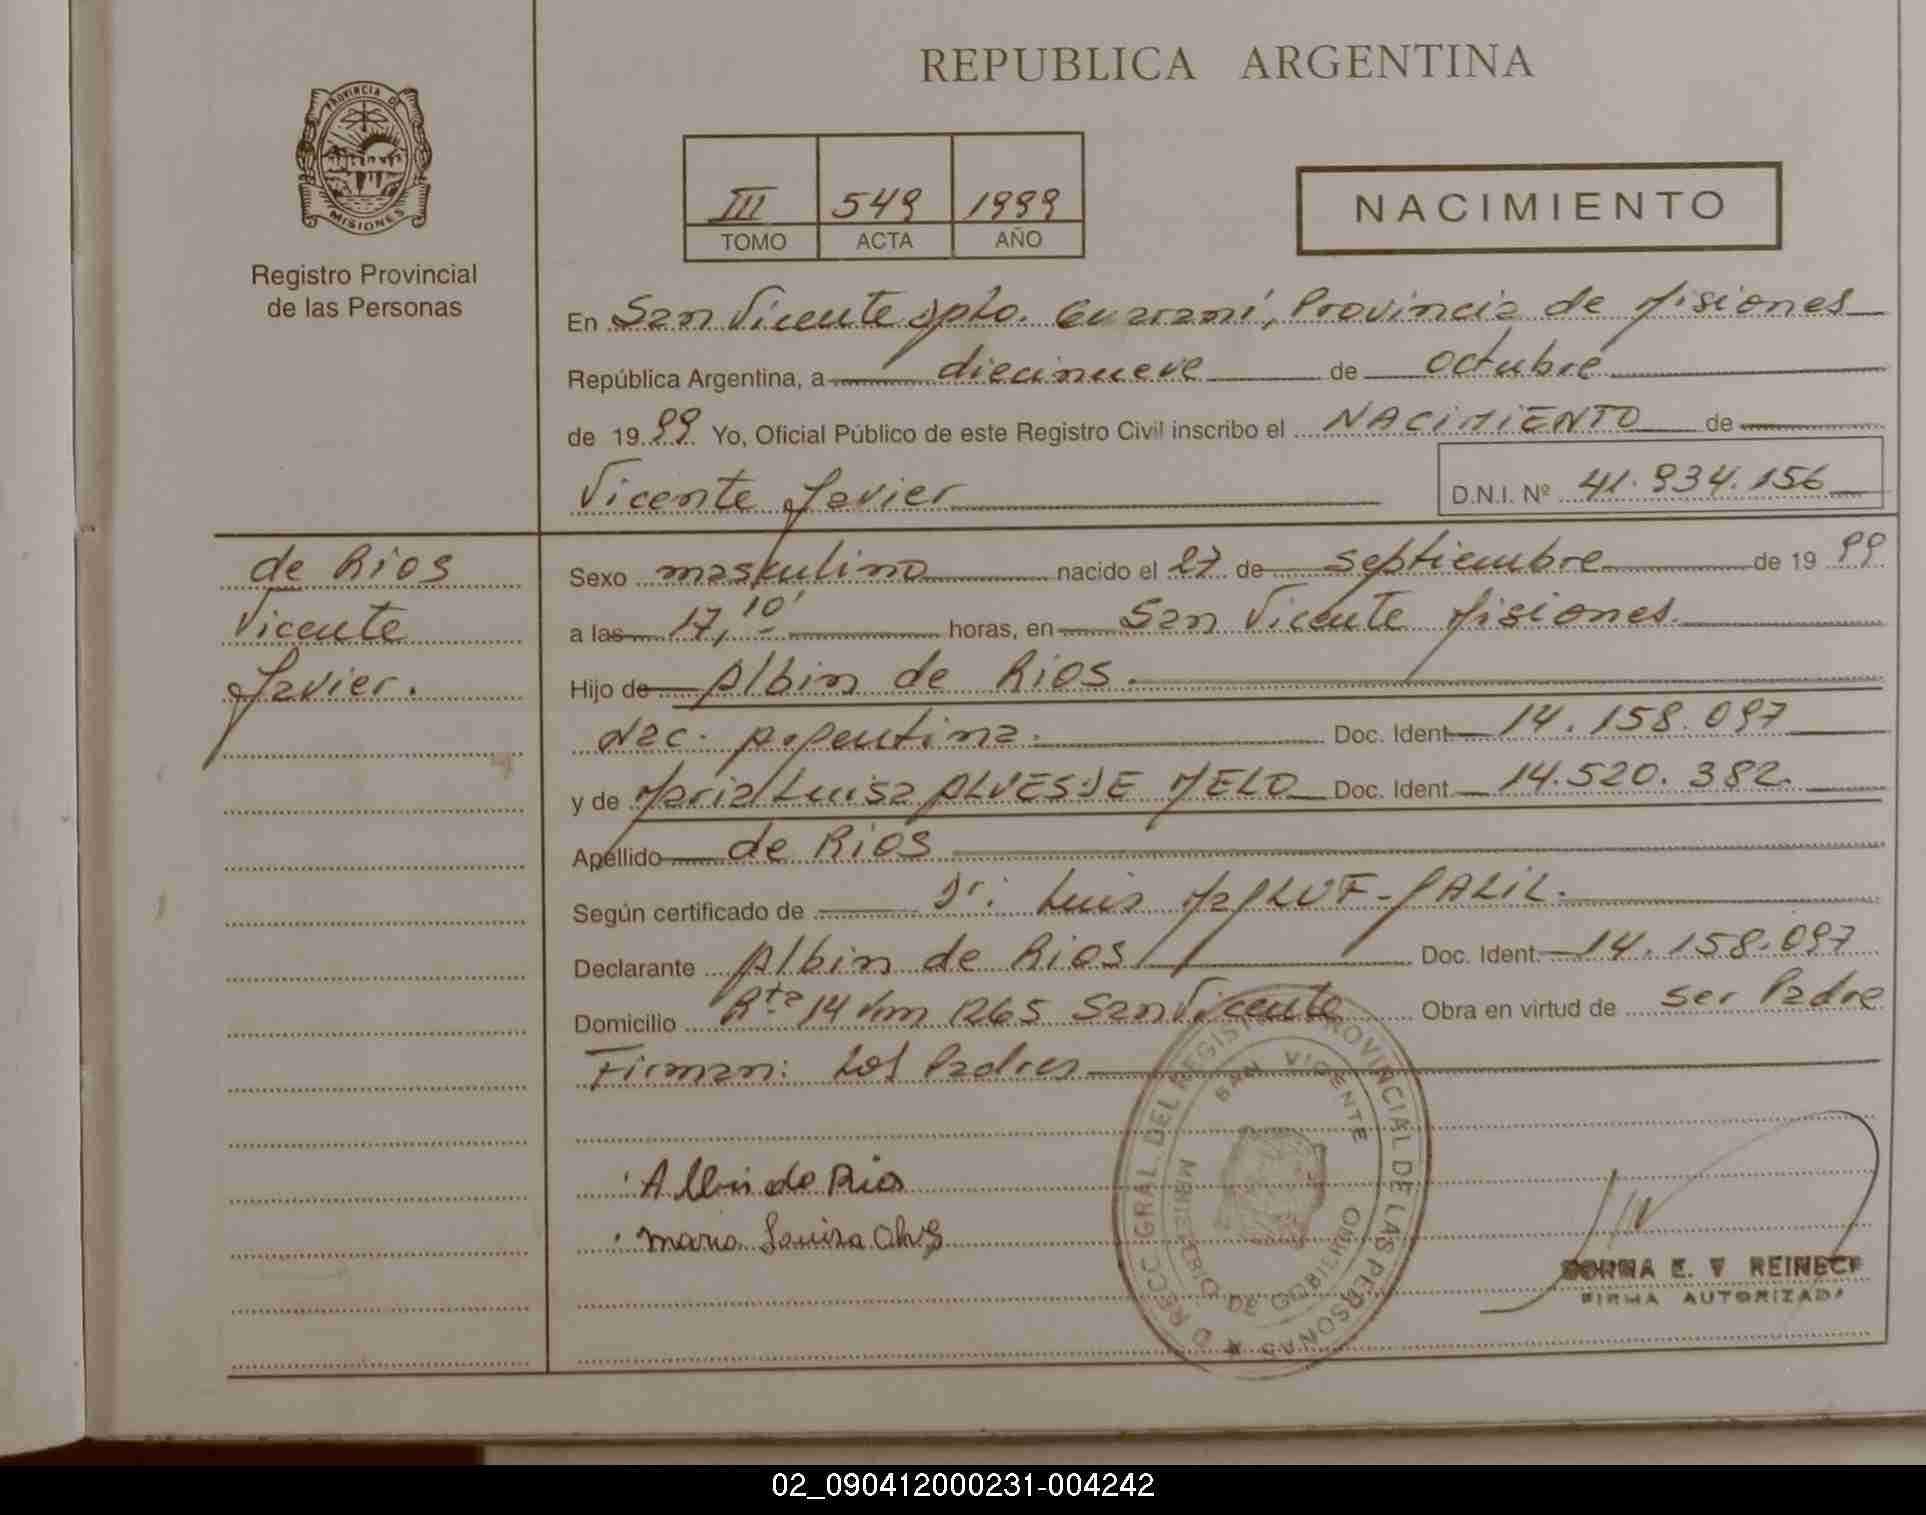 REPUBLICA ARGENTINA
PROVINCIA DE
MISIONES
Registro Provincial
de las Personas
III 549 1999
TOMO ACTA AÑO
NACIMIENTO
En San Vicente Dpto. Guaraní, Provincia de Misiones
República Argentina, a diecinueve de octubre
de 1999 Yo, Oficial Público de este Registro Civil inscribo el NACIMIENTO de
Vicente Javier D.N.I. Nº 41.934.156
de Rios
Vicente
Javier.
Sexo masculino nacido el 27 de septiembre de 1999
a las 17,10' horas, en San Vicente Misiones.
Hijo de Albin de Rios.
Nac. Argentina. Doc. Ident. 14.158.097
y de Maria Luisa ALVES DE MELO Doc. Ident. 14.520.382.
Apellido de Rios
Según certificado de Dr: Luis
Declarante Albin de Rios Doc. Ident. 14.158.097
Domicilio Rta 14 km 1265 San Vicente Obra en virtud de ser Padre
Firman: Los Padres
Albin de Rios
Maria
DIRECC GRAL DEL REGISTRO PROVINCIAL DE LAS PERSONAS
SAN VICENTE
MINISTERIO DE GOBIERNO
NORMA E. V REINECK
FIRMA AUTORIZADA
02_090412000231-004242